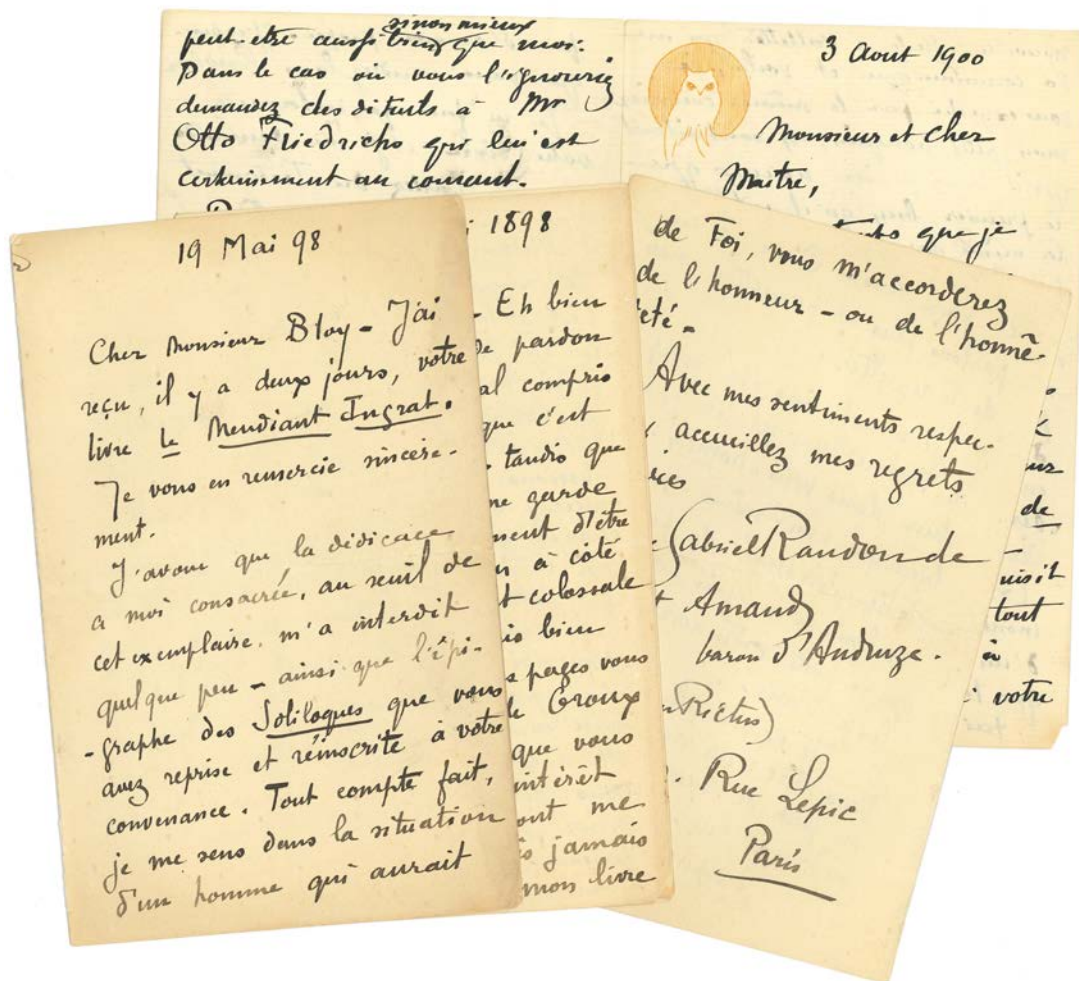 peut-etre aussi bien que moi.
sinon mieux
Dans le cas où vous l'ignoreriez
demandez des details à Mr
Otto Friedrichs qui lui est
certainement au courant.
3 Aout 1900
Monsieur et cher
Maître,
que je
19 Mai 98
Cher Monsieur Bloy - J'ai
reçu, il y a deux jours, votre
livre le Mendiant Ingrat.
Je vous en remercie sincère-
ment.
J'avoue que la dédicace
a moi consacrée, au seuil de
cet exemplaire, m'a interdit
quelque peu - ainsi que l'épi-
-graphe des Soliloques que vous
avez reprise et réinscrite à votre
convenance. Tout compte fait,
je me sens dans la situation
d'un homme qui aurait
i 1898
- Eh bien
de pardon
al compris
que c'est
- tandis que
ne garde
ment d'être
à côté
t colossale
is bien
pages vous
de Groux
que vous
intérêt
ont me
jamais
mon livre
de Foi, vous m'accorderez
de l'honneur - ou de l'honnê-
teté -
Avec mes sentiments respec-
accueillez mes regrets
Gabriel Randon de
t Amand
baron d'Anduze.
Rictus)
Rue Lepic
Paris
ur
de
uisit
tout
à
i votre